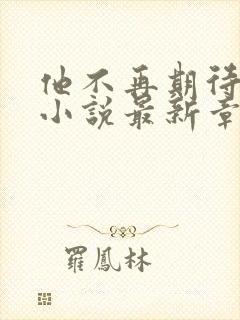 他不再期待
小說最新章
羅鳳林